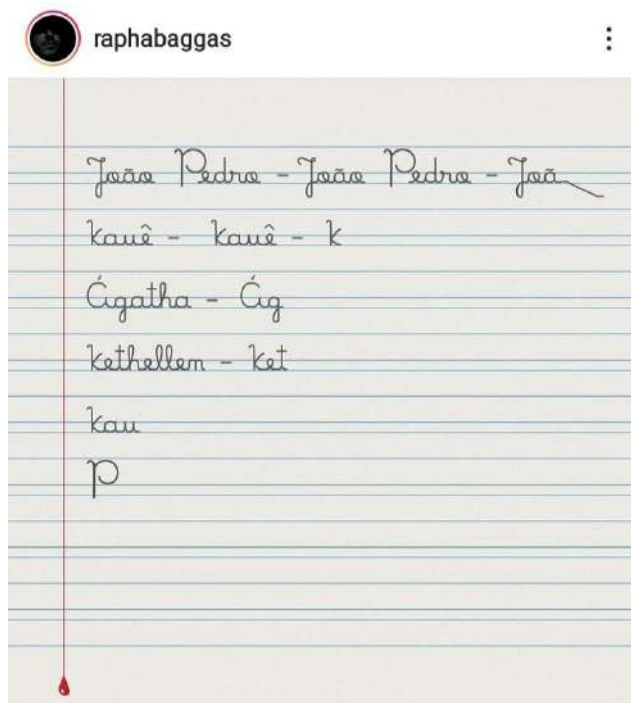 raphabaggas
João Pedro - João Pedro - Joã
Kauê - Kauê - K
Ágatha - Ág
Kethellen - Ket
Kau
P